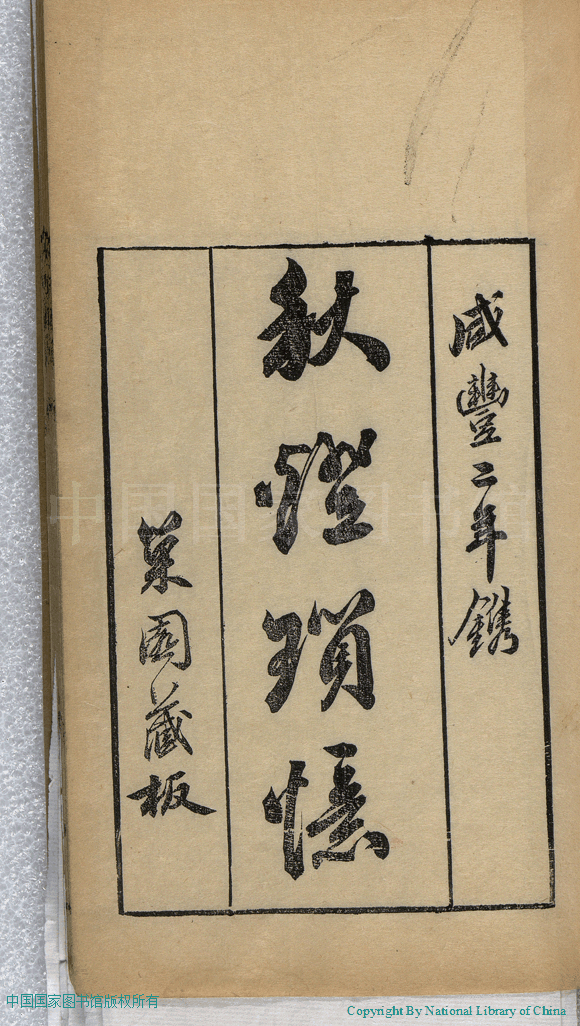 咸豐二年鐫
秋燈瑣憶
巢園藏板
中国国家图书馆
中国国家图书馆版权所有
Copyright By National Library of China